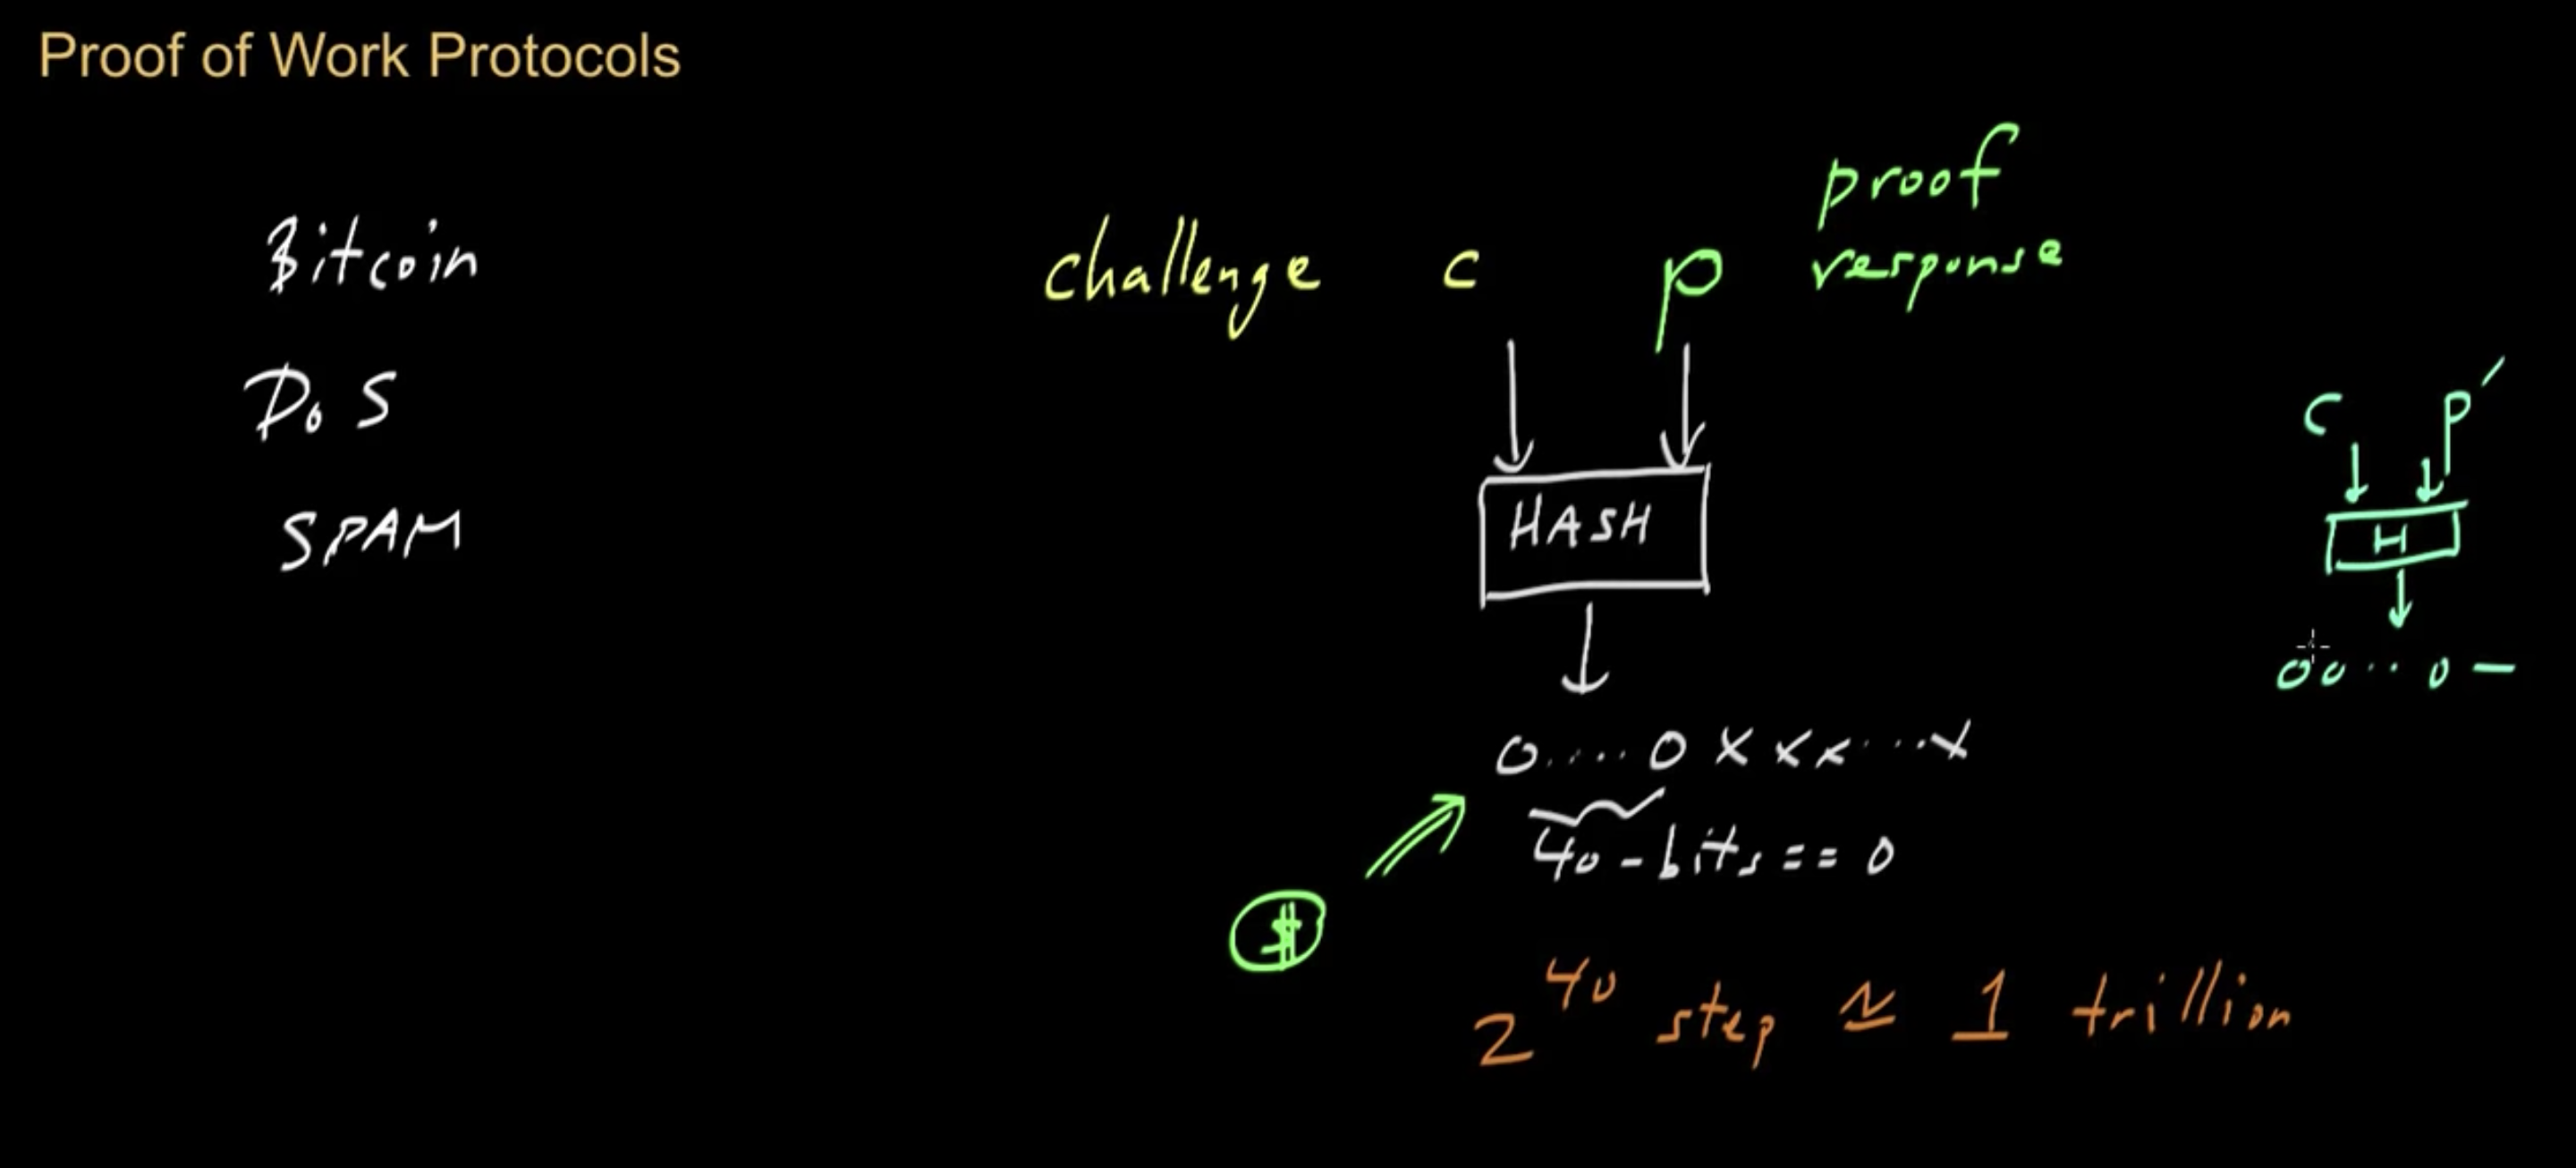 Proof of Work Protocols
Bitcoin
DoS
SPAM
challenge c p proof
response
HASH
0....0xxx...x
40-bits == 0
$
2^40 step ≈ 1 trillion
c p′
H
00..0—